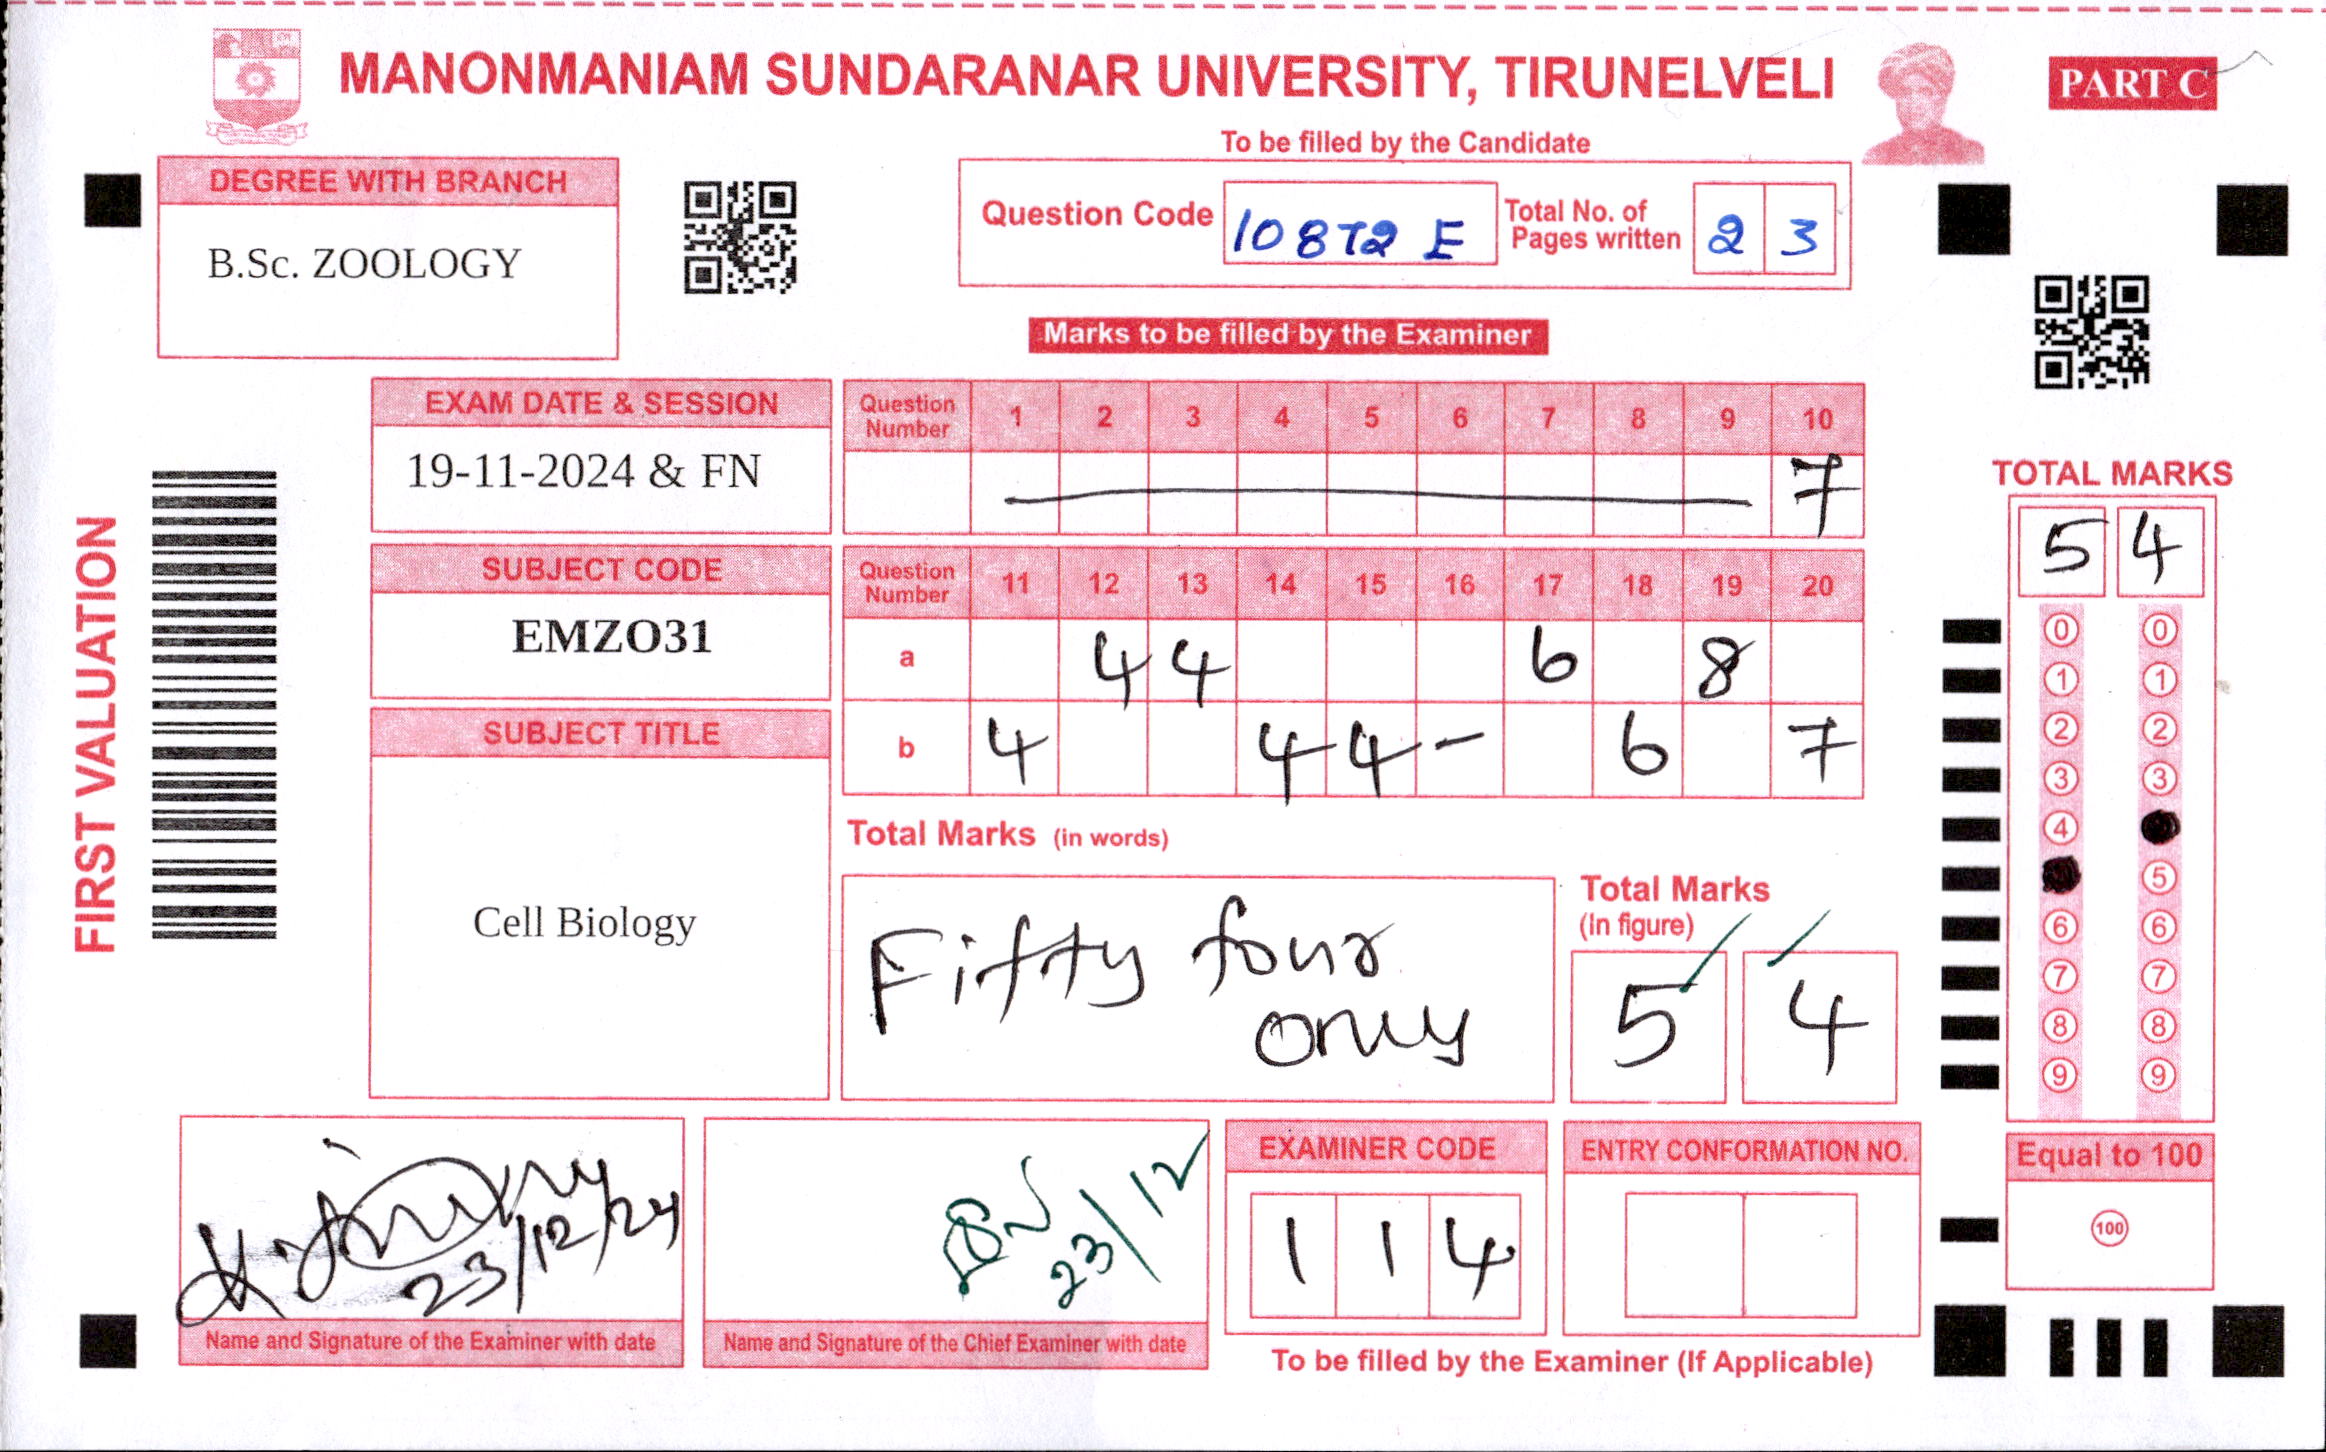 MANONMANIAM SUNDARANAR UNIVERSITY, TIRUNELVELI
PART C
To be filled by the Candidate
DEGREE WITH BRANCH
B.Sc. ZOOLOGY
Question Code 10872 E Total No. of Pages written 2 3
Marks to be filled by the Examiner
EXAM DATE & SESSION
19-11-2024 & FN
Question Number 1 2 3 4 5 6 7 8 9 10
7
SUBJECT CODE
EMZO31
Question Number 11 12 13 14 15 16 17 18 19 20
a 4 4 6 8
b 4 4 4 - 6 7
SUBJECT TITLE
Cell Biology
FIRST VALUATION
Total Marks (in words)
Fifty four
only
Total Marks
(In figure)
5 4
TOTAL MARKS
5 4
0 0
1 1
2 2
3 3
4
5
6 6
7 7
8 8
9 9
Equal to 100
100
23/12/24
Name and Signature of the Examiner with date
23/12
Name and Signature of the Chief Examiner with date
EXAMINER CODE
1 1 4
ENTRY CONFORMATION NO.
To be filled by the Examiner (If Applicable)